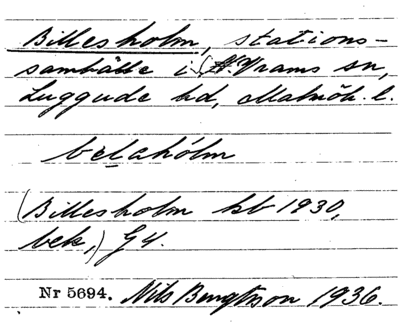 Billesholm, stations-
samhälle i (N. Vrams sn,
Luggude hd, Malmöh. l.
belahólm
(Billesholm kb 1930,
bek,) G4.
Nr 5694. Nils Bengtsson 1936.